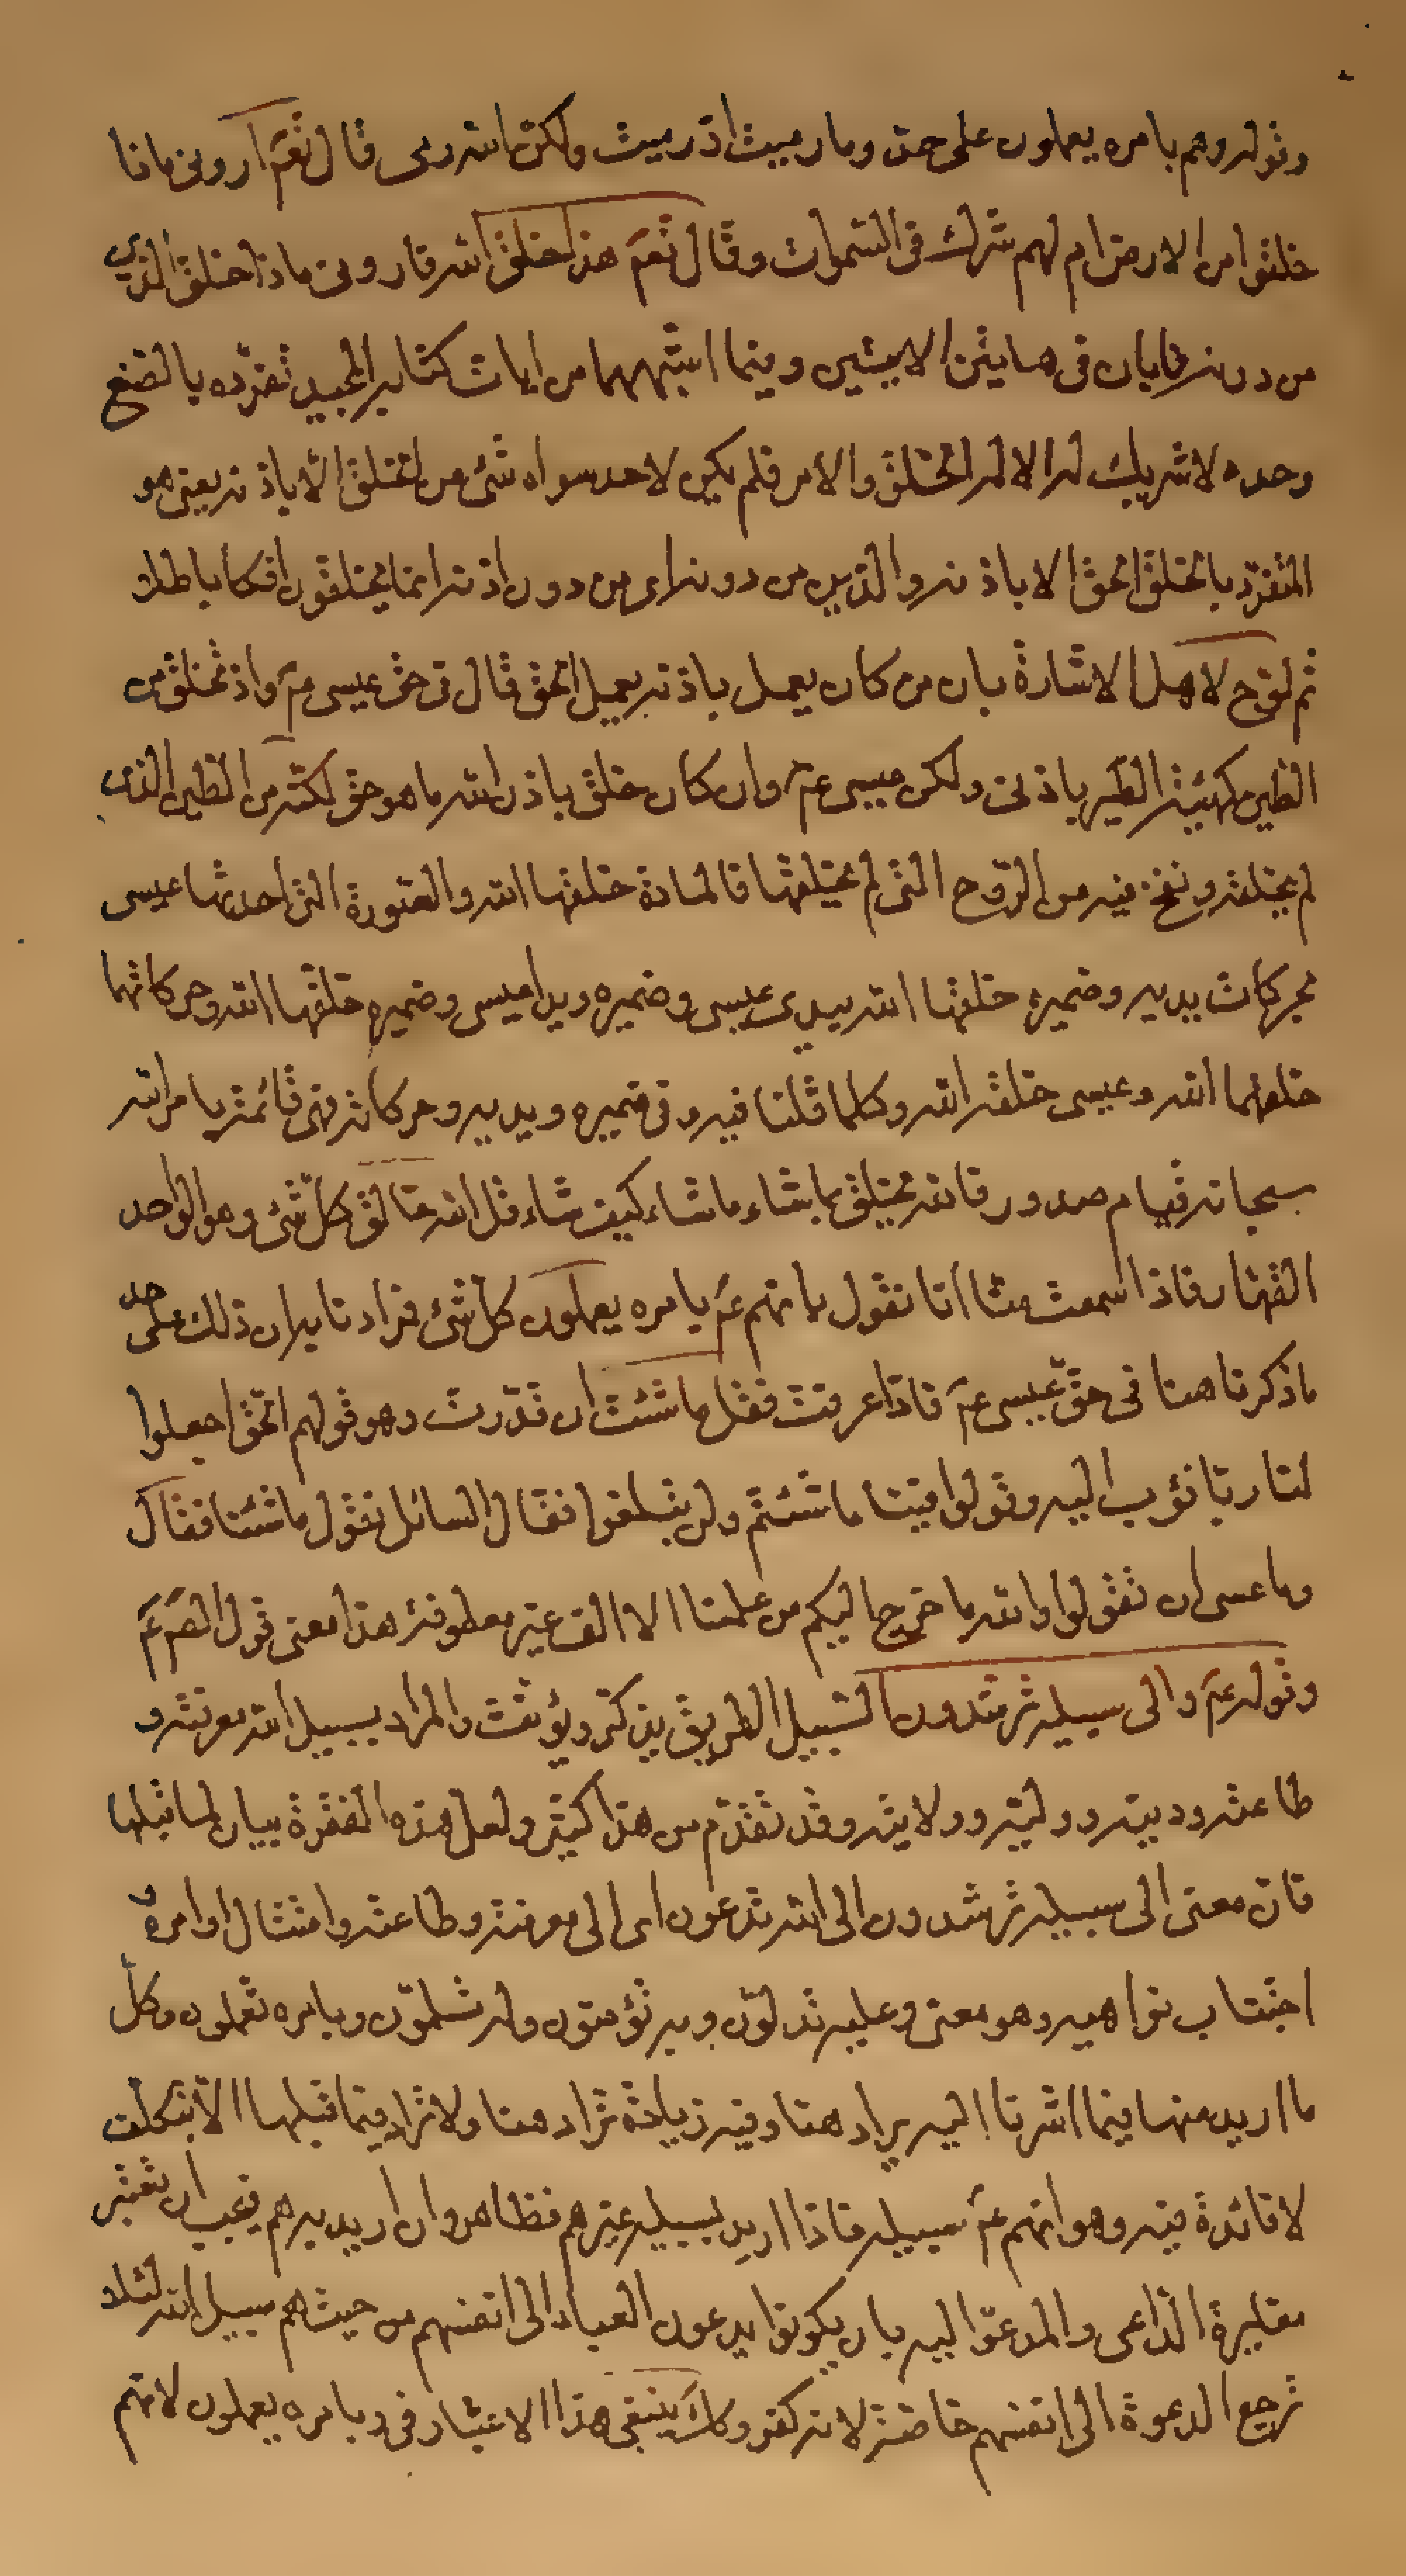 وقوله وهم بامره يعملون على حد وما رميت اذ رميت ولكن الله رمى قال تعم اروني ماذا
خلقوا من الارض ام لهم شرك في السموات وقال تعم هذا خلق الله فاروني ماذا خلق الذين
من دونه فابان في هاتين الايتين وفيما اشبههما من ايات كتابه المجيد تفرّده بالصنع
وحده لا شريك له الا له الخلق والامر فلم يكن لاحد سواه شئ من الخلق الّا باذنه يعني هو
المتفرّد بالخلق الحق الا باذنه والذين من دونه اى من دون اذنه انما يخلقون افكا باطلا
ثم لوّح لاهل الاشارة بان من كان يعمل باذنه يعمل الحق قال في حق عيسى عم واذ تخلق من
الطين كهيئة الطير باذني ولكن عيسى عم وان كان خلق باذن الله ما هو حق لكنه من الطين الذى
لم يخلقه ونفخ فيه من الرّوح التي لم يخلقها فالمادة خلقها الله والصورة التي احدثها عيسى
بحركات يديه وضميره خلقها الله بيدى عيسى وضميره ويدا عيسى وضميره خلقها الله وحركاتهما
خلقهما الله وعيسى خلقه الله وكلما قلنا فيه وفي ضميره ويديه وحركاته فهي قائمة بامر الله
سبحانه قيام صدور فالله يخلق بما شاء ما شاء كيف شاء قل الله خالق كلّ شئ وهو الواحد
القهّار فاذا سمعت منّا انا نقول بانهم عم بامره يعملون كل شئ فمرادنا به ان ذلك على حد
ما ذكرنا هنا في حقّ عيسى عم فاذا عرفت فقل ما شئت ان قدّرت وهو قولهم الحق اجعلوا
لنا ربّا نؤب اليه وقولوا فينا ما شئتم ولن تبلغوا فقال السائل نقول ما شئنا فقال
وما عسى ان تقولوا والله ما خرج اليكم من علمنا الا الف غير معطوفة هذا معنى قول الصم عم
وقوله عم والى سبيله ترشدون السّبيل الطريق يذكّر ويؤنث والمراد بسبيل الله معرفته و
طاعته ودينه ووليّه وولايته وقد تقدّم من هذا كثير ولعل هذه الفقرة بيان لما قبلها
فانّ معنى الى سبيله ترشدون الى الله تدعون اى الى معرفته وطاعته وامتثال اوامره و
اجتناب نواهيه وهو معنى وعليه تدلّون وبه تؤمنون وله تسلمّون وبامره تعملون وكلّ
ما اريد منها فيما اشرنا اليه يراد هنا وفيه زيادة تراد هنا ولا تراد فيما قبلها الّا بتكلف
لا فائدة فيه وهو انهم عم سبيله فاذا اريد بسبيله غيرهم فظاهر وان اريد به هم فيجب ان تعتبر
مغايرة الدّاعى والمدعوّ اليه بان يكونوا يدعون العباد الى انفسهم من حيث هم سبيل الله لئلا
ترجع الدعوة الى انفسهم خاصّة لانه كفر وكك ينبغي هذا الاعتبار في وبامره يعملون لانهم